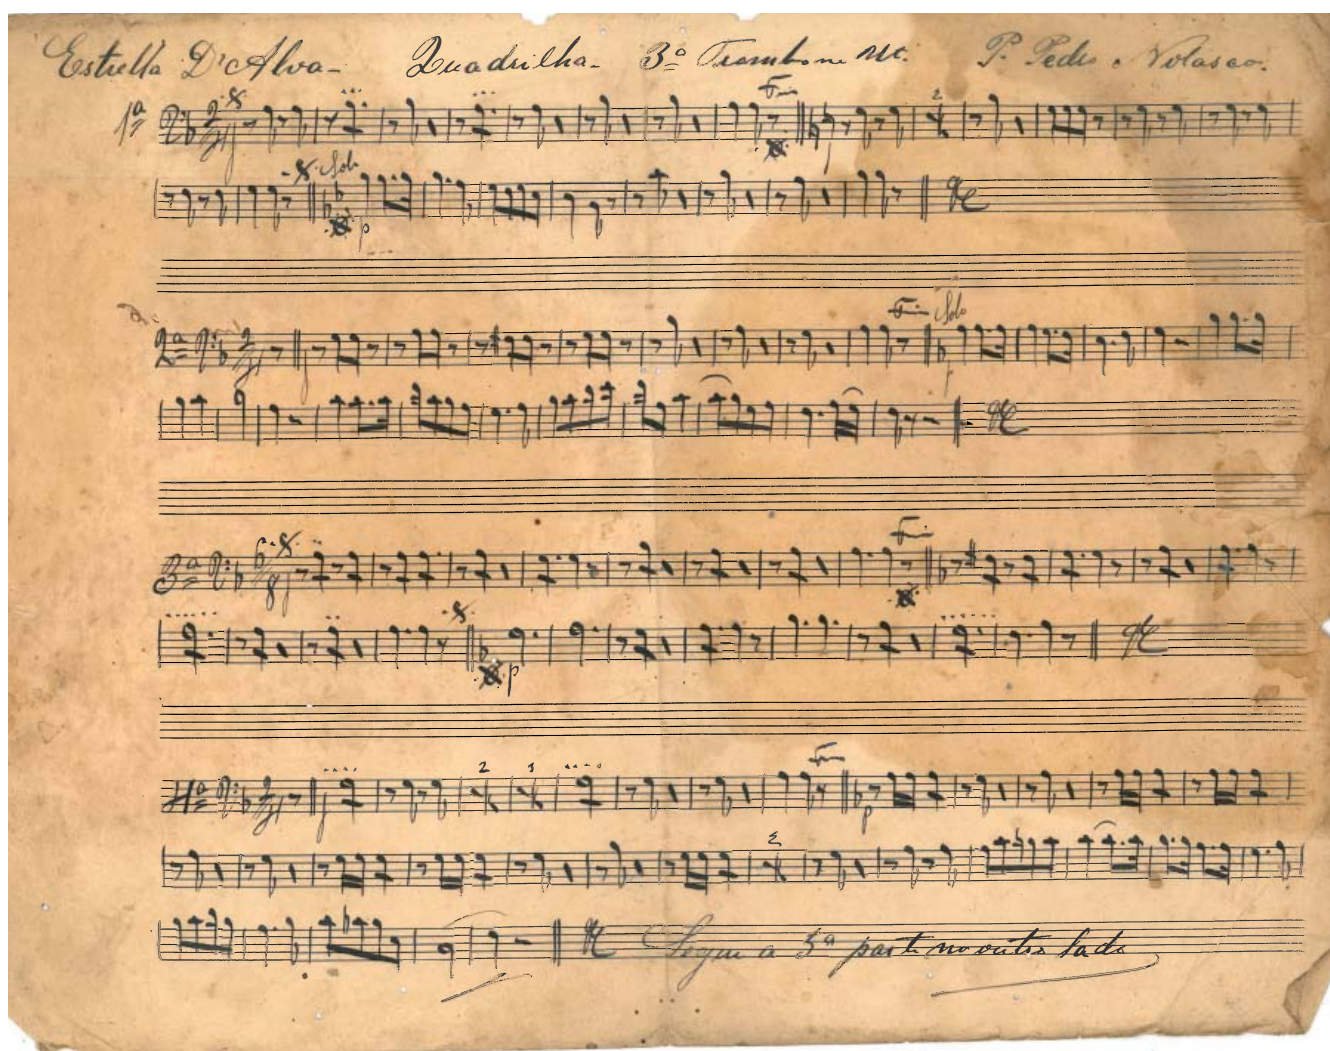 Estrella D'Alva - Quadrilha - 3º Trombone Ut. P. Pedro Nolasco.
1ª Fim 2
Solo p
2ª Fim Solo p
3ª 6/8 Fim
p
4ª 2 1 Fim p
2
Segue a 5ª parte no outro lado